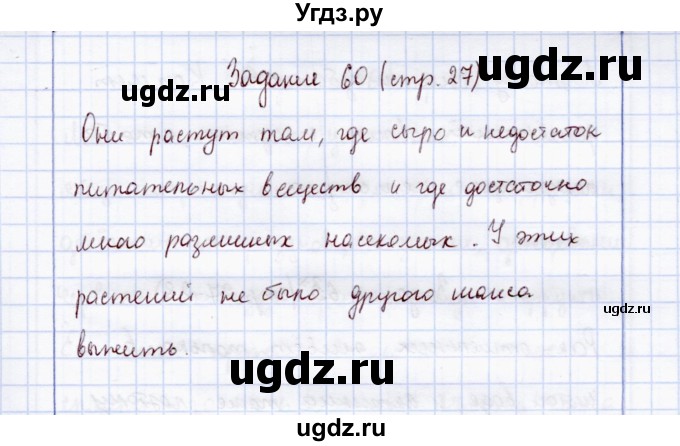 Угдз.ру
Задание 60 (стр. 27)
ugdz.ru ugdz.ru
Они растут там, где сыро и недостаток
питательных веществ и где достаточно
много различных насекомых. У этих
растений не было другого шанса
ugdz.ru
выжить.
ugdz.ru
ugdz.ru